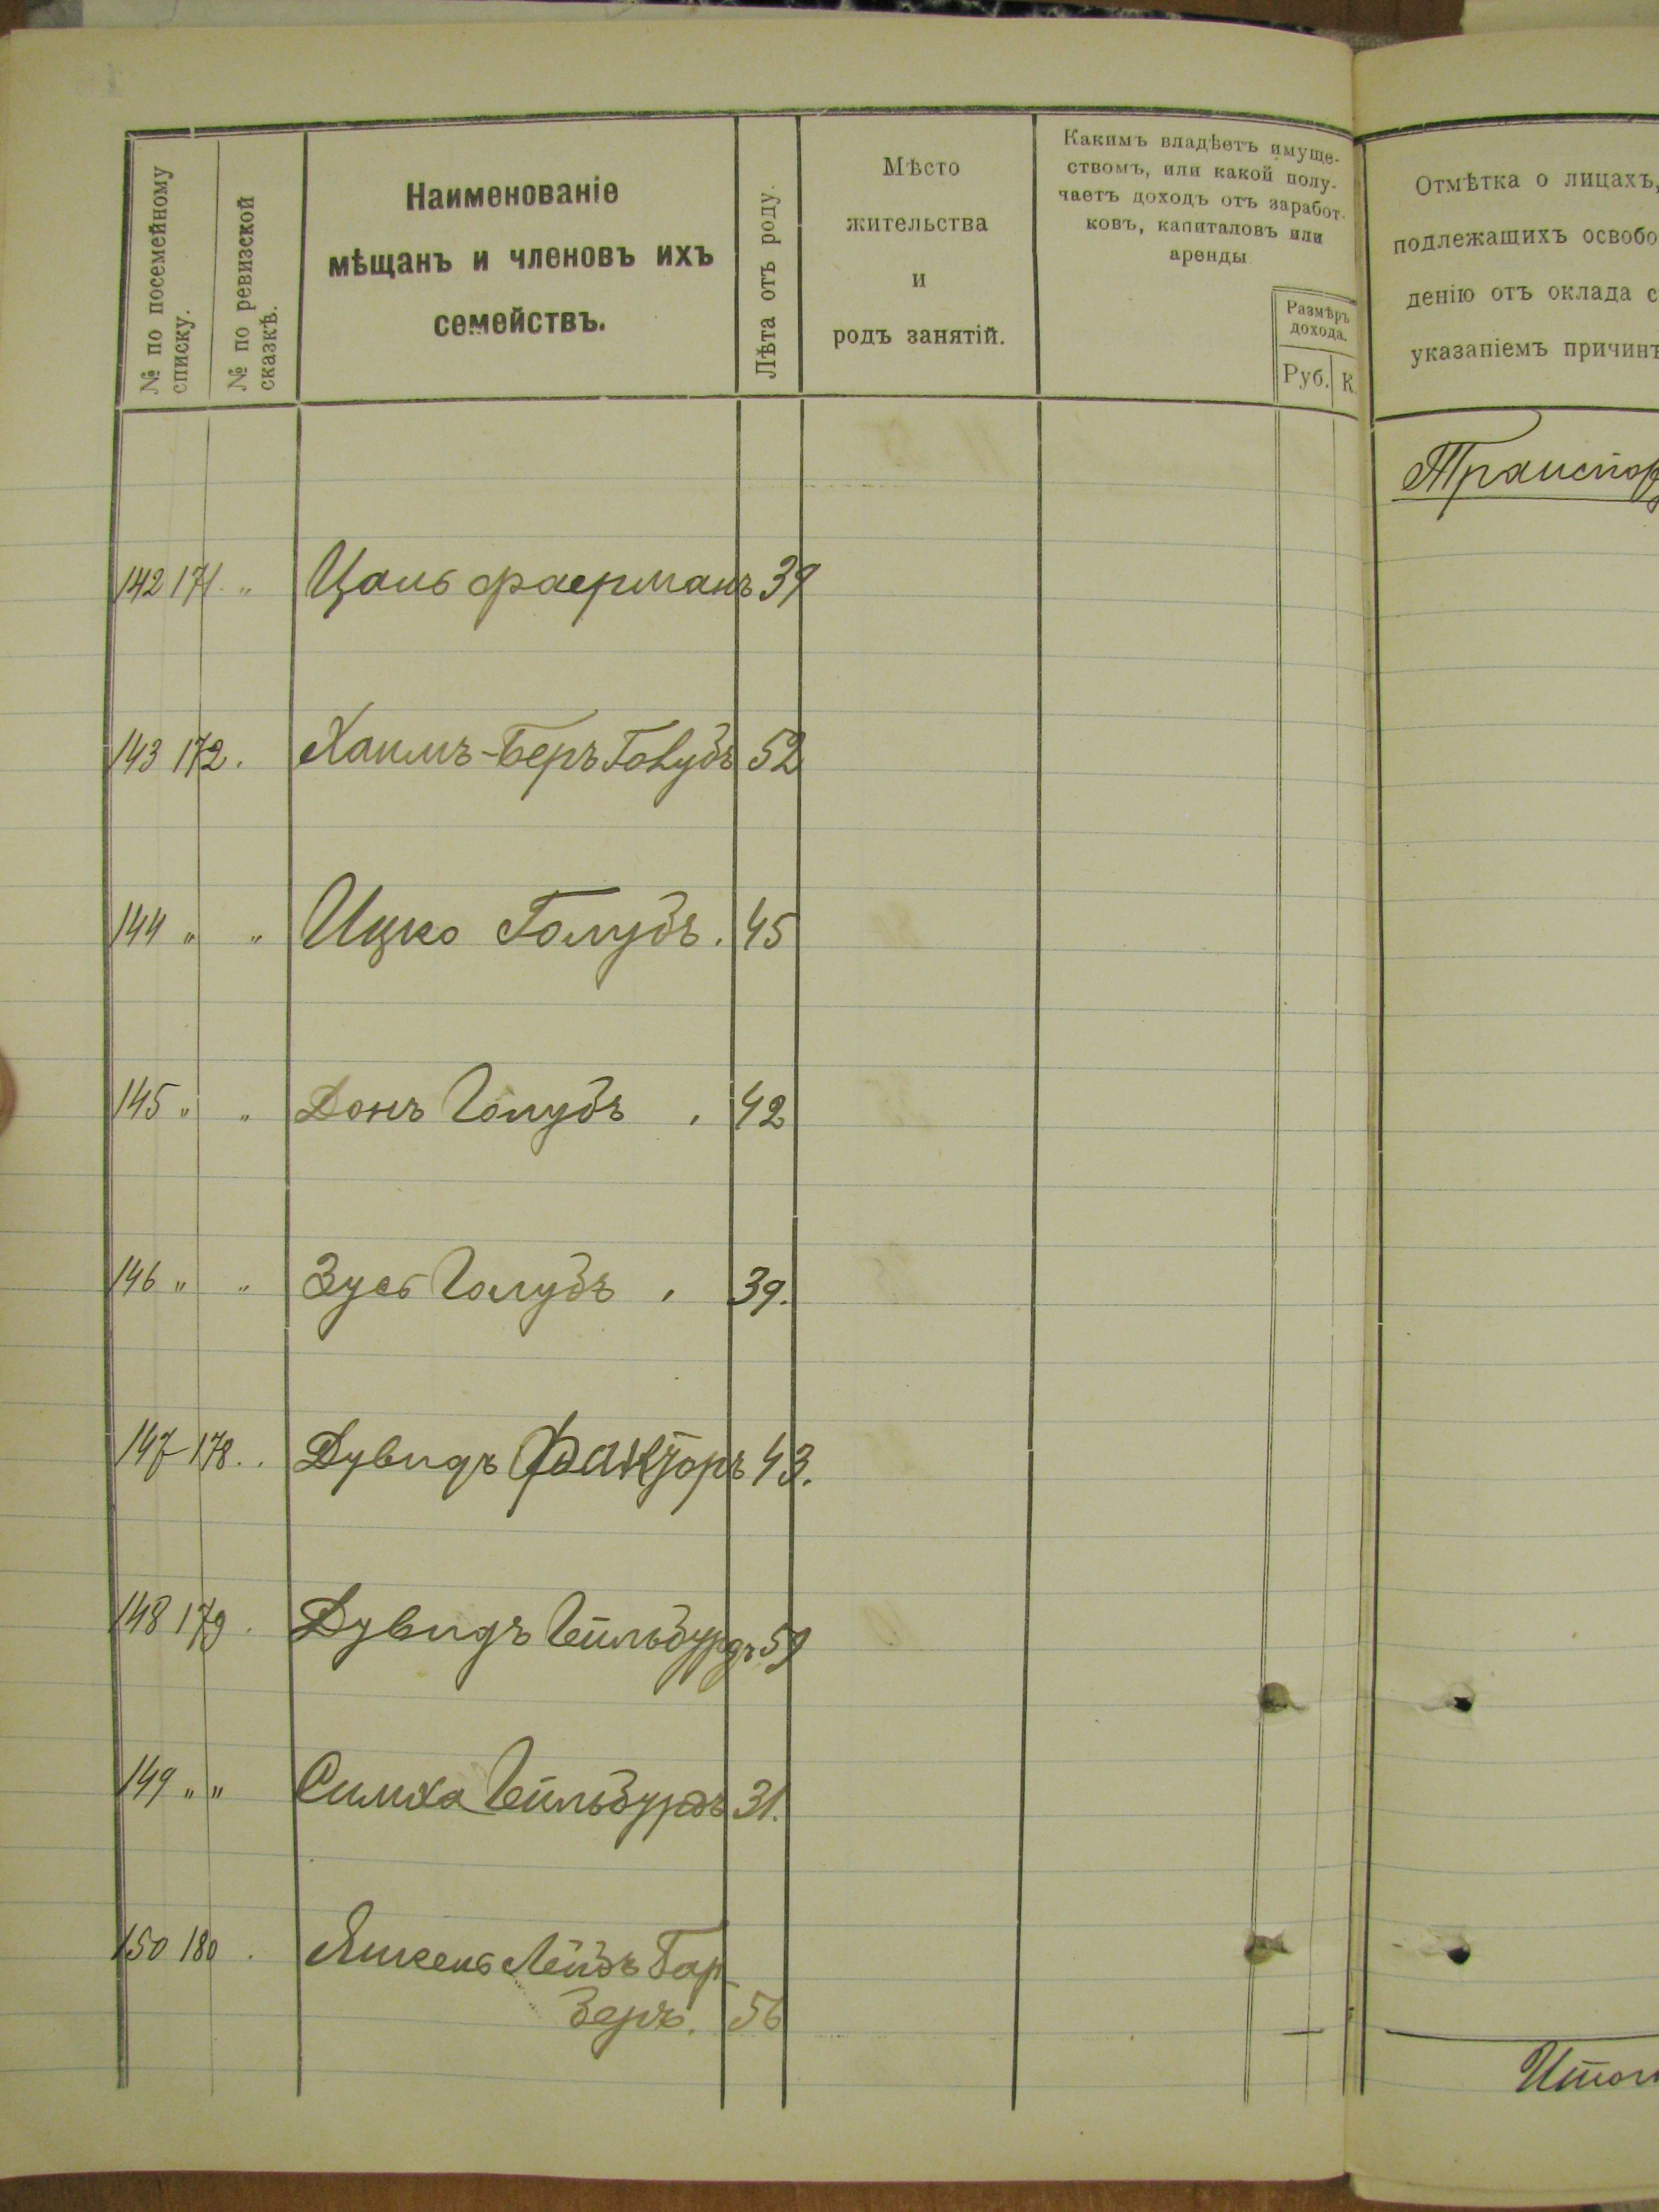 № по посемейному
списку.
№ по ревизской
сказкѣ.
Наименованіе
мѣщанъ и членовъ ихъ
семействъ.
Лѣта отъ роду.
Мѣсто
жительства
и
родъ занятій.
Какимъ владѣетъ имуще-
ствомъ, или какой полу-
чаетъ доходъ отъ заработ-
ковъ, капиталовъ или
аренды
Размѣръ
дохода.
Руб. К.
Отмѣтка о лицахъ,
подлежащихъ освобо
денію отъ оклада с
указаніемъ причинъ
Транспор
142 171 „ Цаль Фаерманъ 39
143 172. Хаимъ-Беръ Голубъ 52
144 „ „ Ицко Голубъ. 45
145 „ „ Донъ Голубъ . 42
146 „ „ Зусь Голубъ . 39.
147 178.. Дувидъ Факторъ 43.
148 179. Дувидъ Гейльбурдъ 59
149 „ „ Симха Гейльбурдъ 31.
150 180. Янкель Лейбъ Гар
беръ. 56
Итог